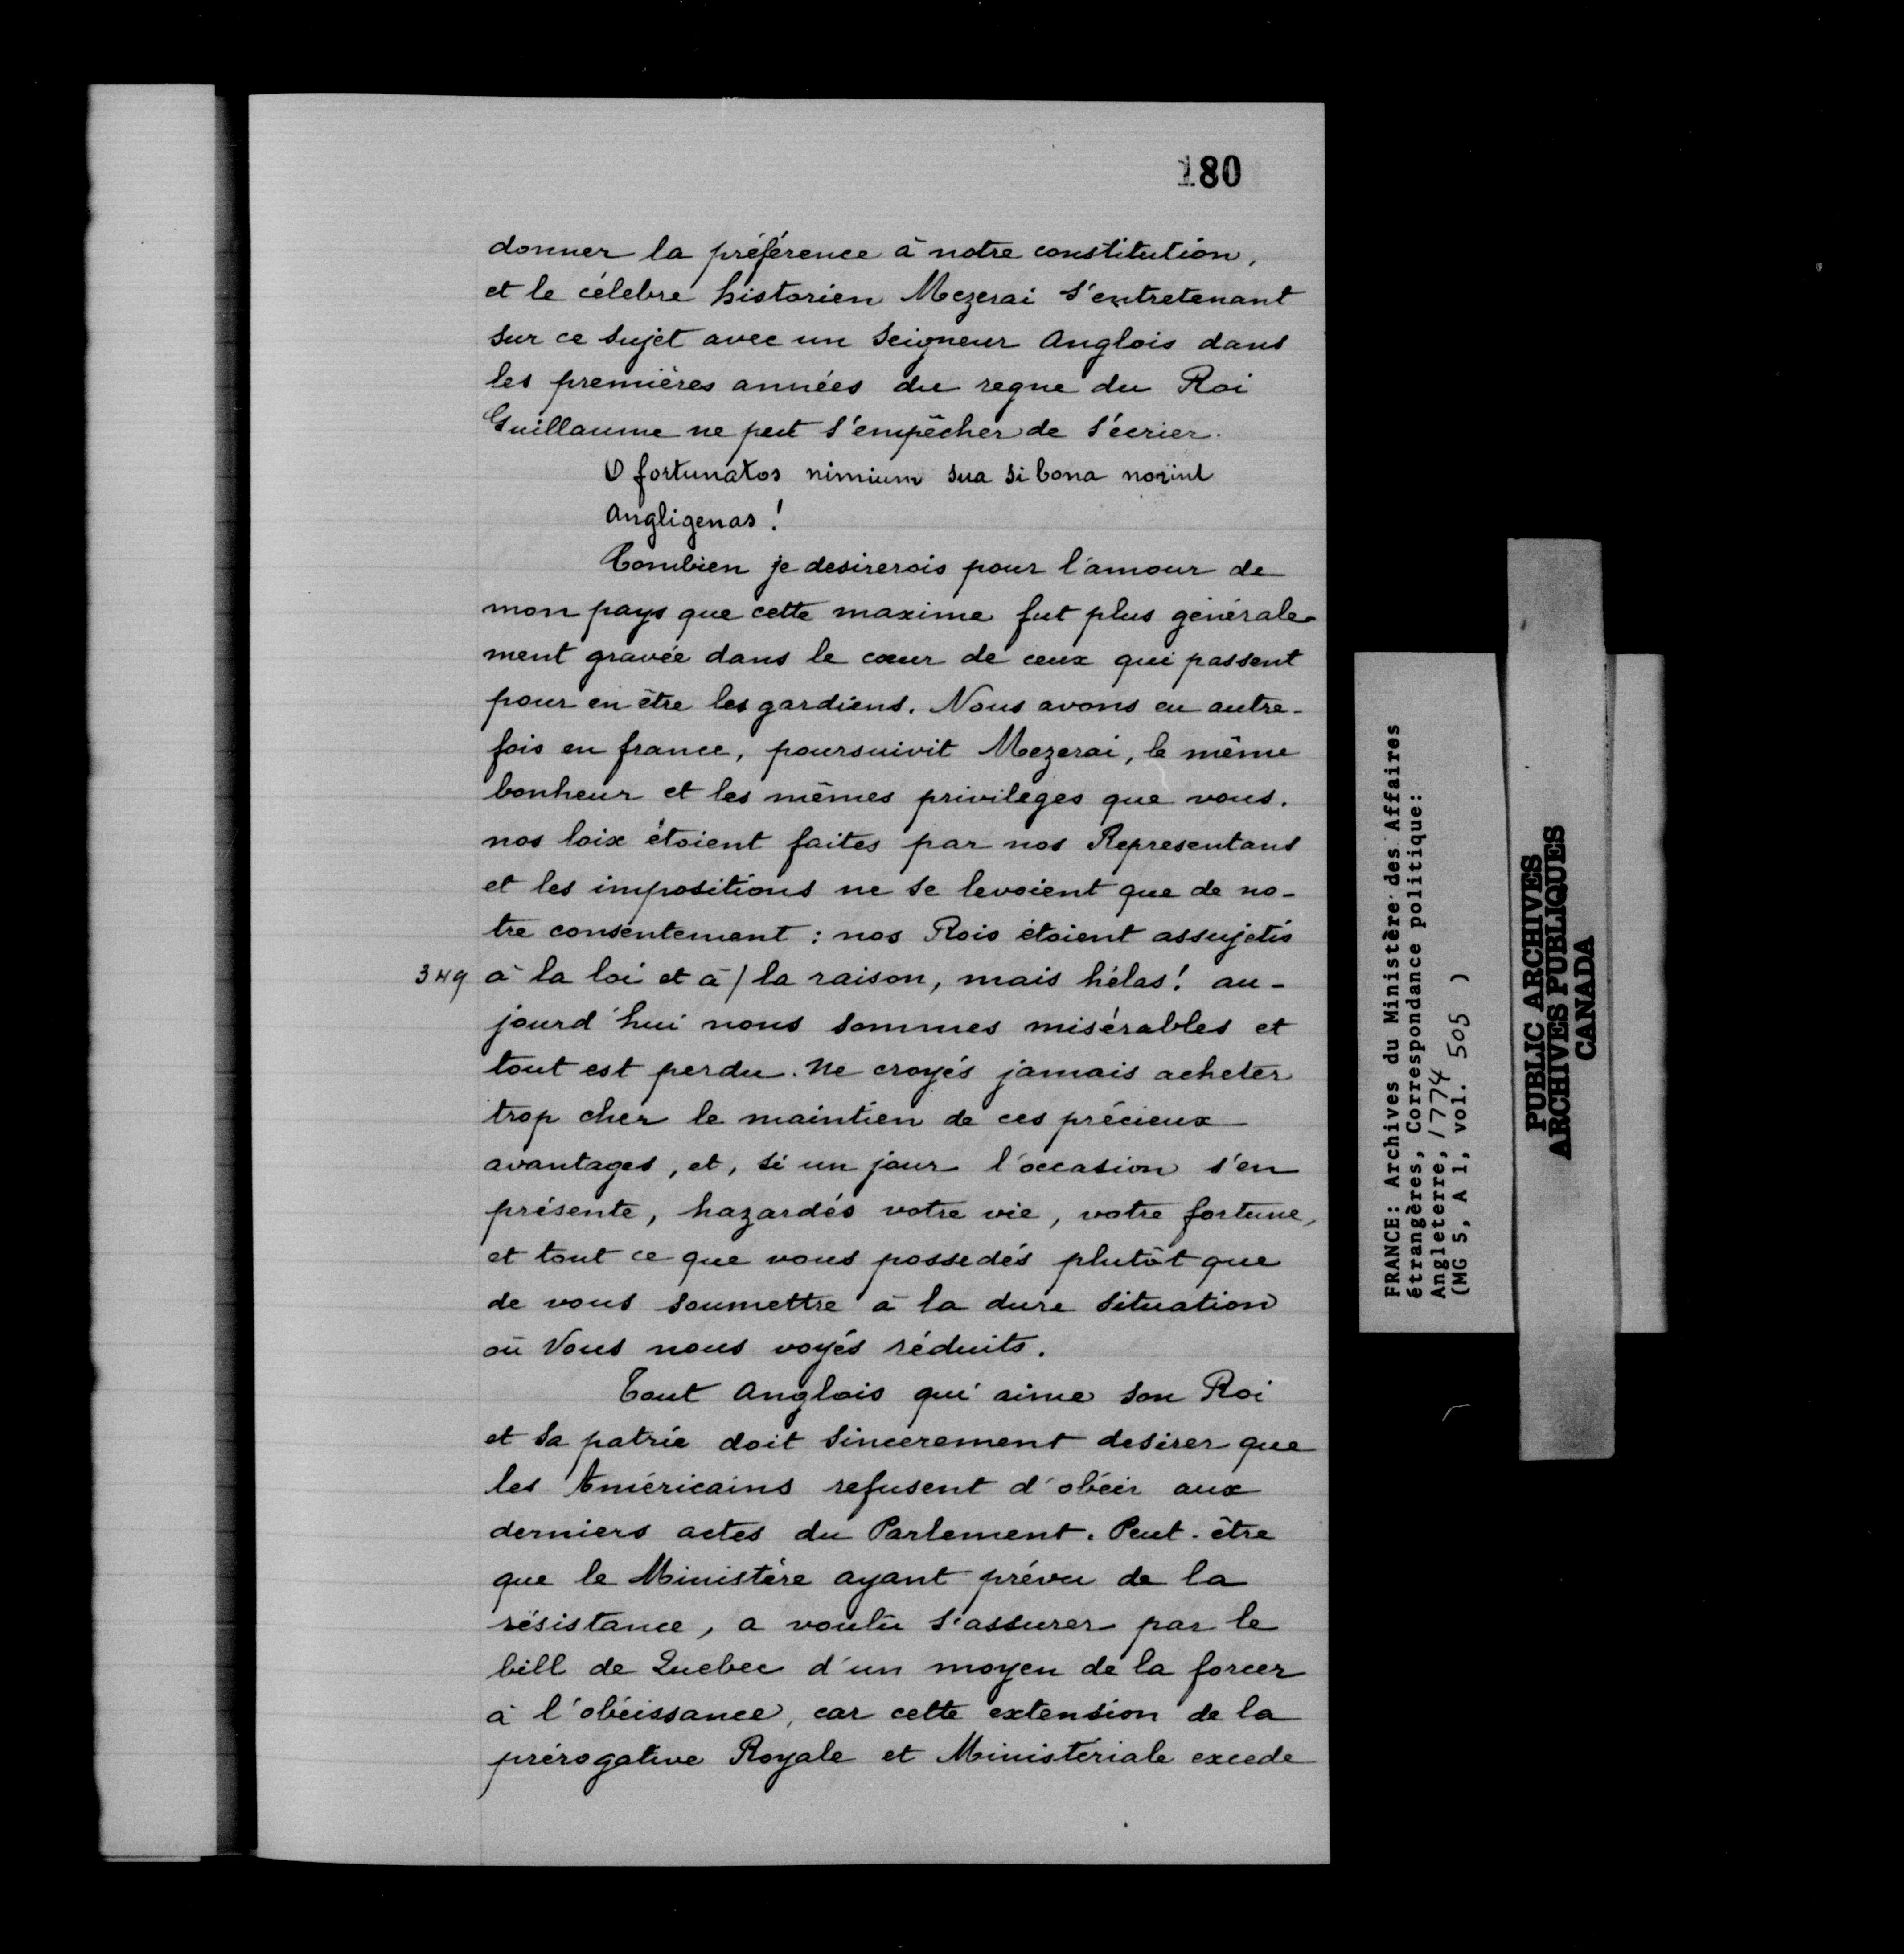 180
donner la préférence à notre constitution,
et le célebre historien Mezerai s'entretenant
sur ce sujet avec un Seigneur Anglois dans
les premières années du regne du Roi
Guillaume ne peut s'empêcher de s'écrier.
O fortunatos nimium sua si bona norint
Angligenas!
Combien je desirerois pour l'amour de
mon pays que cette maxime fut plus générale-
ment gravée dans le cœur de ceux qui passent
pour en être les gardiens. Nous avons eu autre-
fois en france, poursuivit Mezerai, le même
bonheur et les mêmes privileges que vous.
nos loix étoient faites par nos Representans
et les impositions ne se levoient que de no-
tre consentement : nos Rois étoient assujetis
349 à la loi et à / la raison, mais hélas! au-
jourd'hui nous sommes misérables et
tout est perdu. Ne croyés jamais acheter
trop cher le maintien de ces précieux
avantages, et, si un jour l'occasion s'en
présente, hazardés votre vie, votre fortune,
et tout ce que vous possedés plutôt que
de vous soumettre à la dure situation
où Vous nous voyés réduits.
Tout Anglois qui aime son Roi
et sa patrie doit sincerement desirer que
les Américains refusent d'obéir aux
derniers actes du Parlement. Peut-être
que le Ministère ayant prévu de la
résistance, a voulu s'assurer par le
bill de Quebec d'un moyen de la forcer
à l'obéissance, car cette extension de la
prérogative Royale et Ministériale excede
FRANCE: Archives du Ministère des Affaires
étrangères, Correspondance politique:
Angleterre, 1774
(MG 5, A 1, vol. 505 )
PUBLIC ARCHIVES
ARCHIVES PUBLIQUES
CANADA